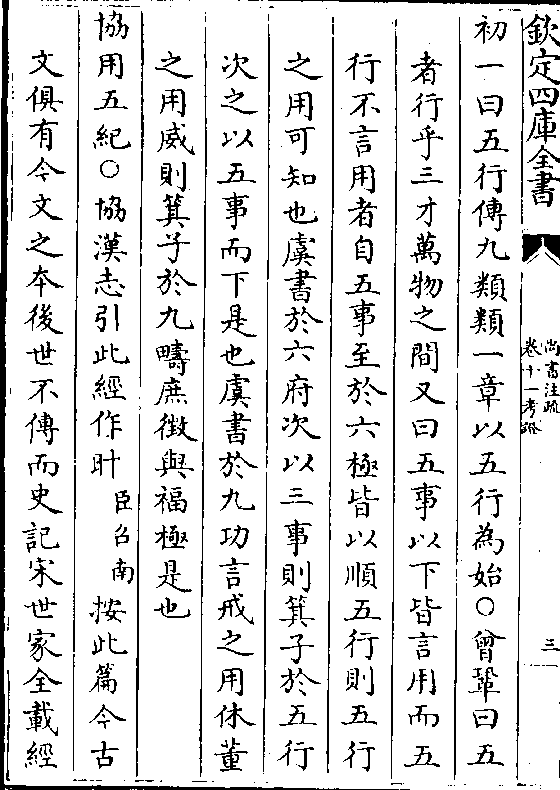 欽定四庫全書
尚書注疏
卷十一考證
三
初一曰五行傳九類類一章以五行為始○曾鞏曰五
者行乎三才萬物之間又曰五事以下皆言用而五
行不言用者自五事至於六極皆以順五行則五行
之用可知也虞書於六府次以三事則箕子於五行
次之以五事而下是也虞書於九功言戒之用休董
之用威則箕子於九疇庶徴與福極是也
協用五紀○協漢志引此經作旪臣召南按此篇今古
文俱有今文之本後世不傳而史記宋世家全載經